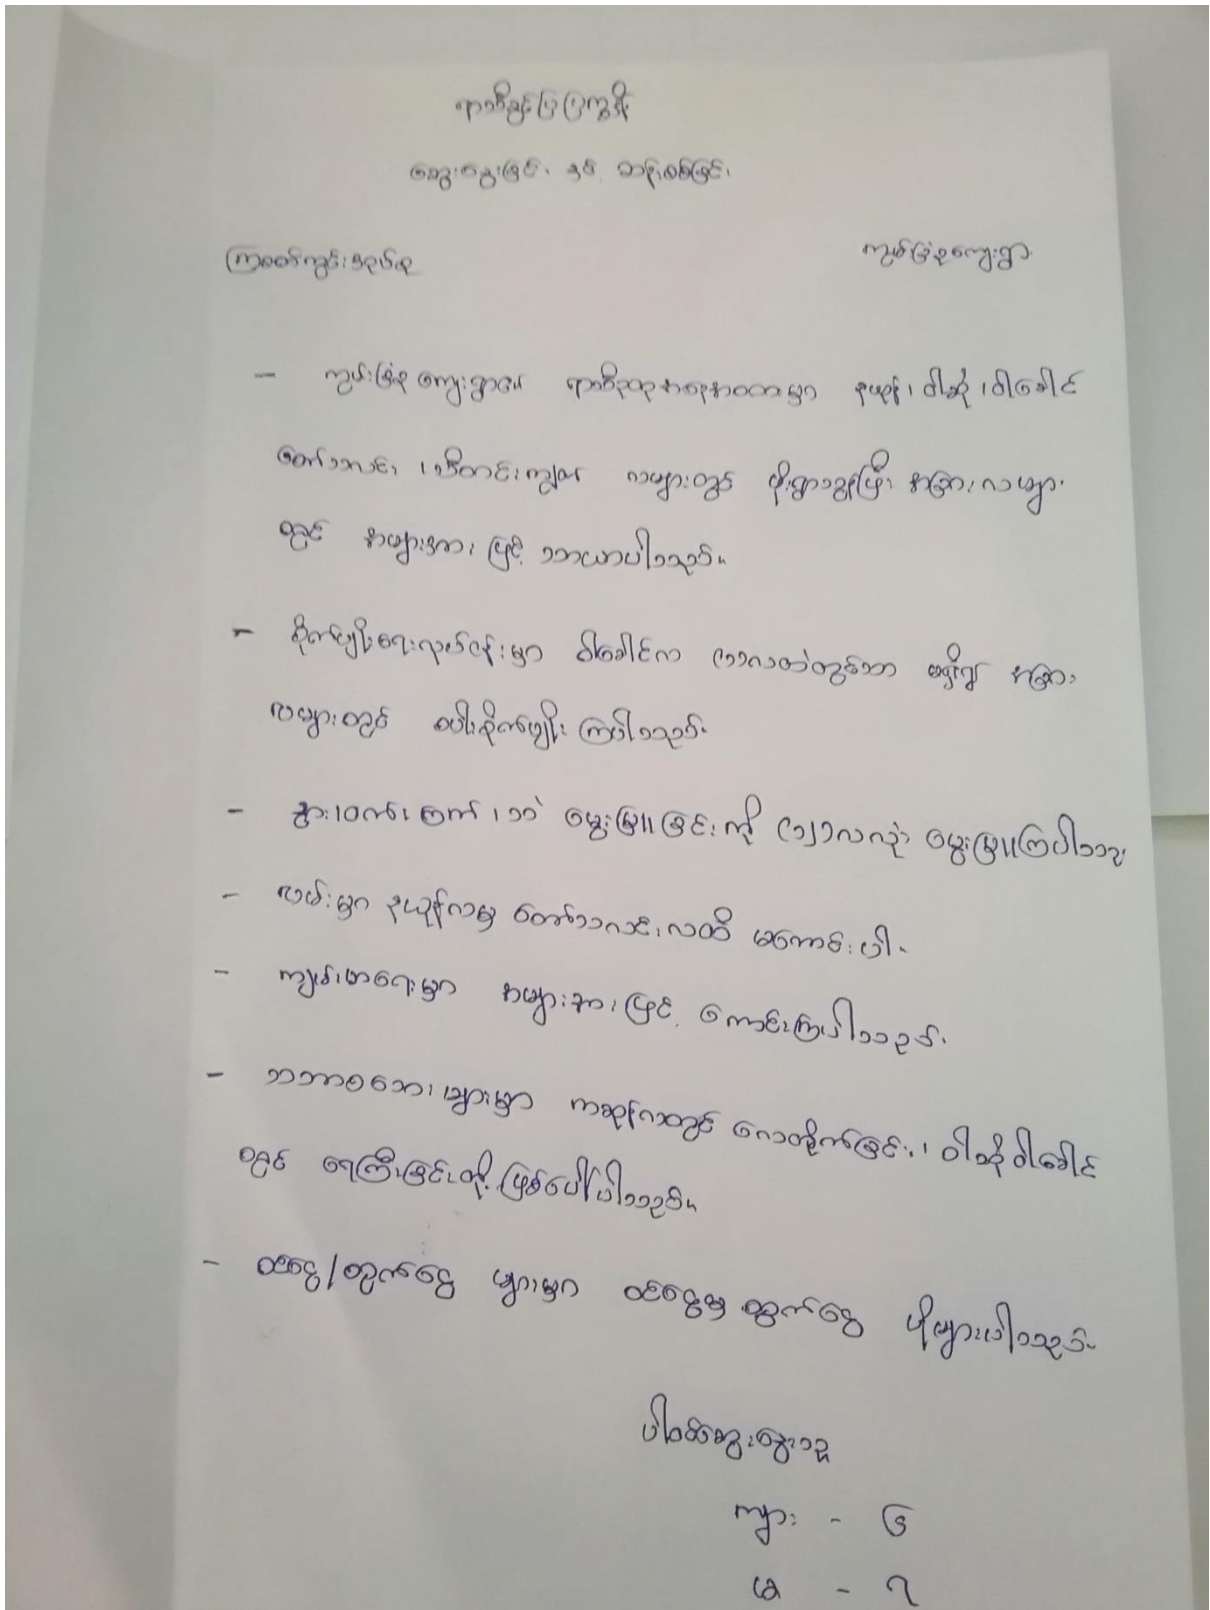 ရာသီခွင်ပြပြက္ခဒိန်
ဆွေးနွေးခြင်း နှင့် ဆန်းစစ်ခြင်း
ကြခတ်ကွင်းအုပ်စု ကွမ်းခြံစုကျေးရွာ
- ကွမ်းခြံစု ကျေးရွာ၏ ရာသီဥတုအနေအထားမှာ နယုန်၊ ဝါဆို၊ ဝါခေါင်
တော်သလင်း ၊ သီတင်းကျွတ် လများတွင် မိုးရွာသွန်းပြီး အခြားလများ
တွင် အများအား ဖြင့် သာယာပါသည်။
- စိုက်ပျိုးရေးလုပ်ငန်းမှာ ဝါခေါင်လ (၁)လထဲတွင်သာ မရှိ၍ အခြား
လများတွင် စပါးစိုက်ပျိုး ကြပါသည်။
- နွား၊ ဝက်၊ ကြက် ၊ ဘဲ မွေးမြူခြင်းကို (၁၂)လလုံး မွေးမြူကြပါသည်
- လမ်းမှာ နယုန်လမှ တော်သလင်းလထိ မကောင်းပါ။
- ကျန်းမာရေးမှာ အများအားဖြင့် ကောင်းကြပါသည်။
- သဘာဝဘေးများမှာ ကဆုန်လတွင် လေတိုက်ခြင်း၊ ဝါဆို ဝါခေါင်
တွင် ရေကြီးခြင်းတို့ ဖြစ်ပေါ်ပါသည်။
- ဝင်ငွေ/ထွက်ငွေ များမှာ ဝင်ငွေမှ ထွက်ငွေ ပိုများပါသည်။
ပါဝင်ဆွေးနွေးသူ
ကျား - ၆
မ - ၇